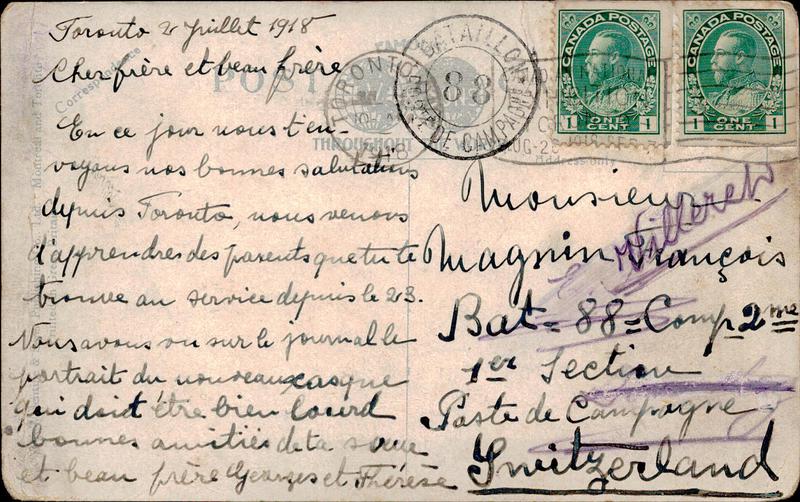 Toronto 2 juillet 1918
Cher frère et beau frère
En ce jour nous t'en-
voyons nos bonnes salutations
depuis Toronto, nous venons
d'apprendre des parents que tu te
trouve au service depuis le 23.
Nous avons vu sur le journal le
portrait du nouveau casque
qui doit être bien lourd
bonnes amitiés de ta soeur
et beau frère Georges et Thérèse
Correspondence
POST
THROUGHOUT
TORONTO
BATAILLON
88
POSTE DE CAMPAGNE
CANADA POSTAGE
1 ONE CENT 1
CANADA POSTAGE
1 ONE CENT 1
Address only
Monsieur
Willeret
Magnin François
Bat = 88 = Comp 2me
1er Section
Poste de Campagne
Switzerland